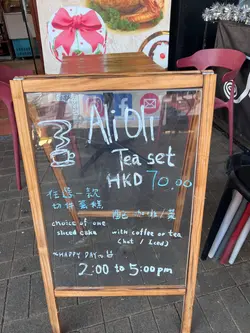 Ali Oli
Tea set
HKD 70.00
任選一款
切件蛋糕
配 咖啡/茶
choice of one
sliced cake
with coffee or tea
(hot / iced)
~HAPPY DAY~
2:00 to 5:00pm